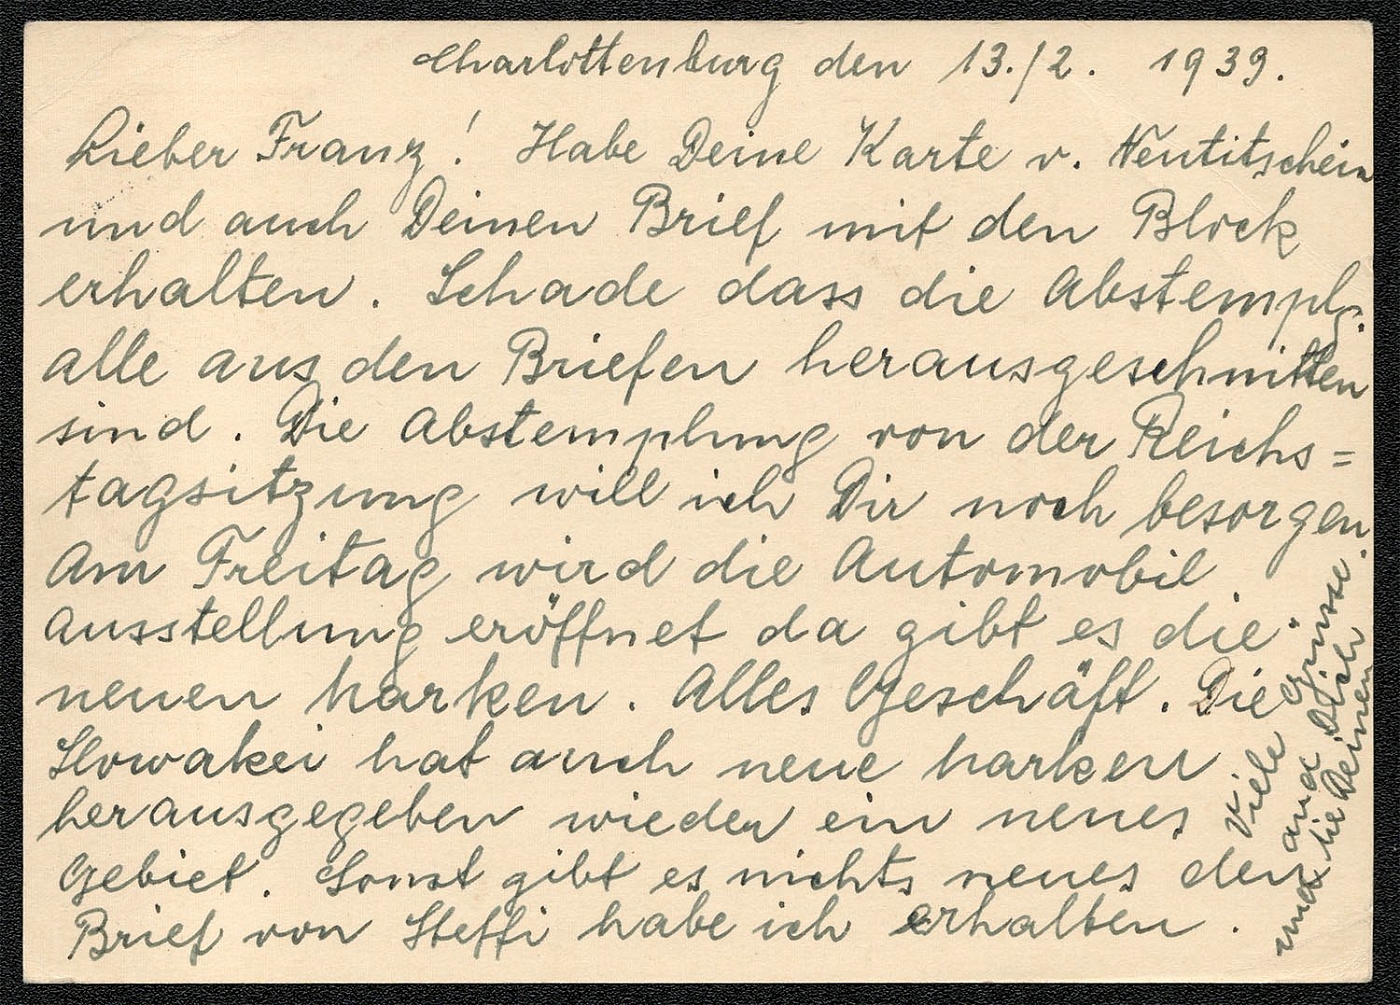 Charlottenburg den 13./2. 1939.
Lieber Franz! Habe Deine Karte v. Neutitschein
und auch Deinen Brief mit den Block
erhalten. Schade dass die Abstemplg.
alle aus den Briefen herausgeschnitten
sind. Die Abstemplung von der Reichs=
tagsitzung will ich Dir noch besorgen.
Am Freitag wird die Automobil
Ausstellung eröffnet da gibt es die
neuen Marken. Alles Geschäft. Die
Slowakei hat auch neue Marken
herausgegeben wieder ein neues
Gebiet. Sonst gibt es nichts neues den
Brief von Steffi habe ich erhalten.
Viele Grüsse
an Dich
und die Deinen